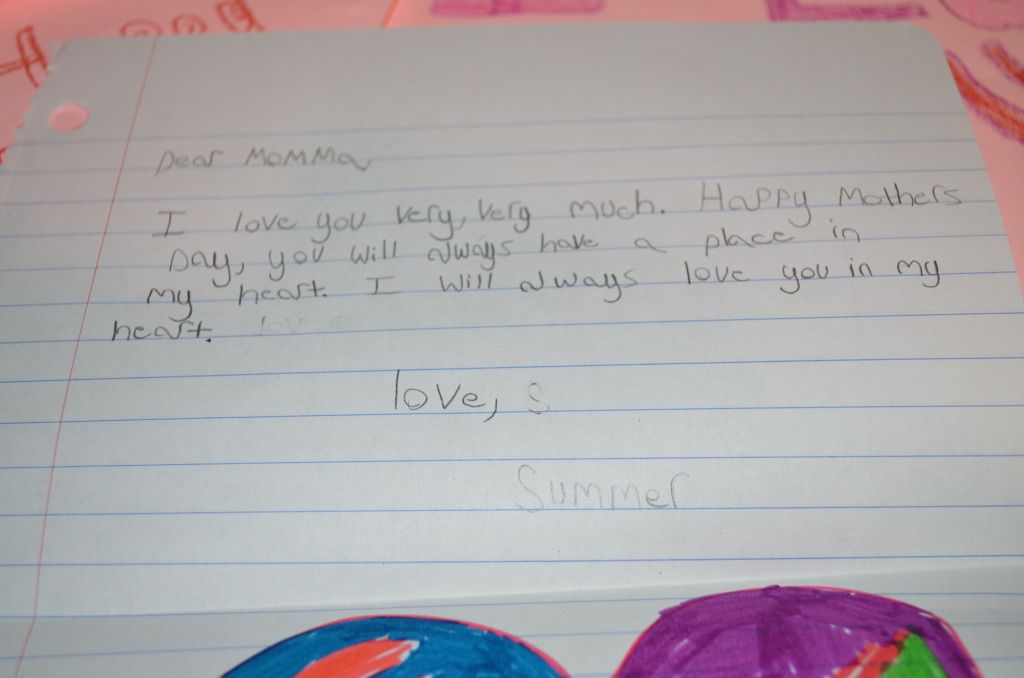 Dear Momma
I love you very, very much. Happy Mothers
Day, you will always have a place in
my heart. I will always love you in my
heart. lov
love, S
Summer